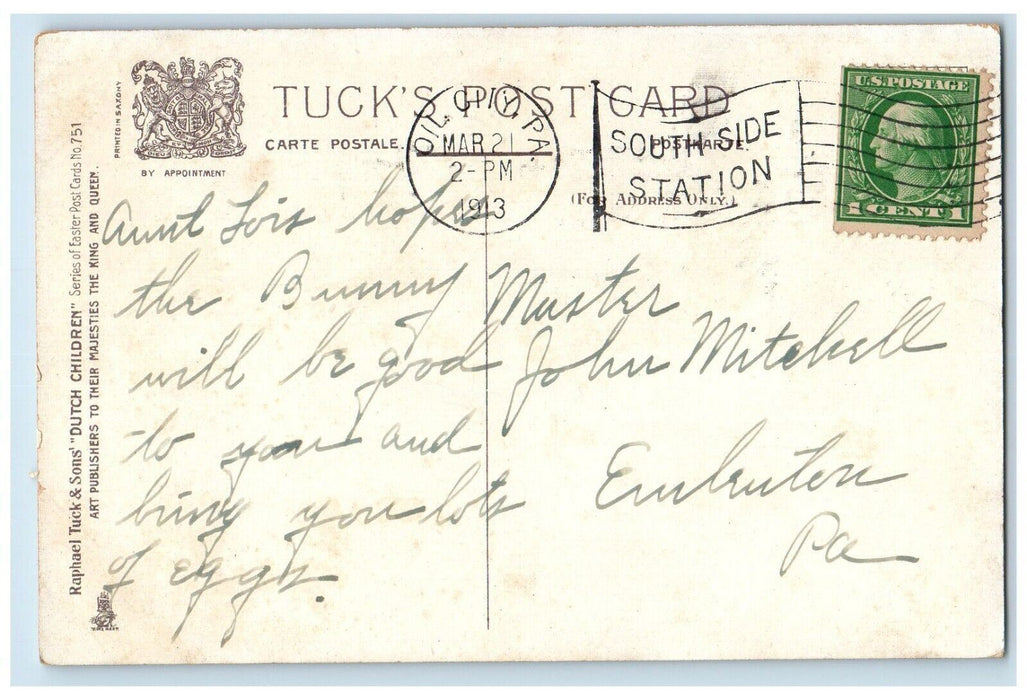 TUCK'S POST CARD
CARTE POSTALE. POSTKARTE.
(FOR ADDRESS ONLY.)
BY APPOINTMENT
PRINTED IN SAXONY
Raphael Tuck & Sons' "DUTCH CHILDREN" Series of Easter Post Cards No. 751
ART PUBLISHERS TO THEIR MAJESTIES THE KING AND QUEEN.
OIL CITY, PA.
MAR 21
2-PM
1913
SOUTH SIDE
STATION
U.S. POSTAGE
1 CENT 1
Aunt Lois hopes
the Bunny
will be good
to you and
bring you lots
of eggs.
Master
John Mitchell
Emlenton
Pa